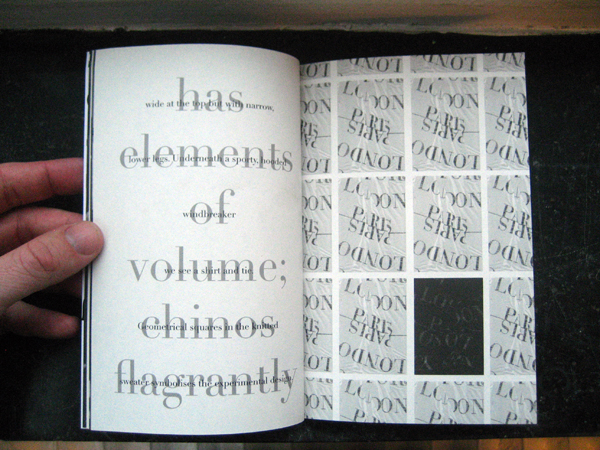 has
wide at the top but with narrow,
elements
lower legs. Underneath a sporty, hooded
of
windbreaker
volume;
we see a shirt and tie
chinos
Geometrical squares in the knitted
flagrantly
sweater symbolises the experimental design
LONDON
PARIS
PARIS
LONDON